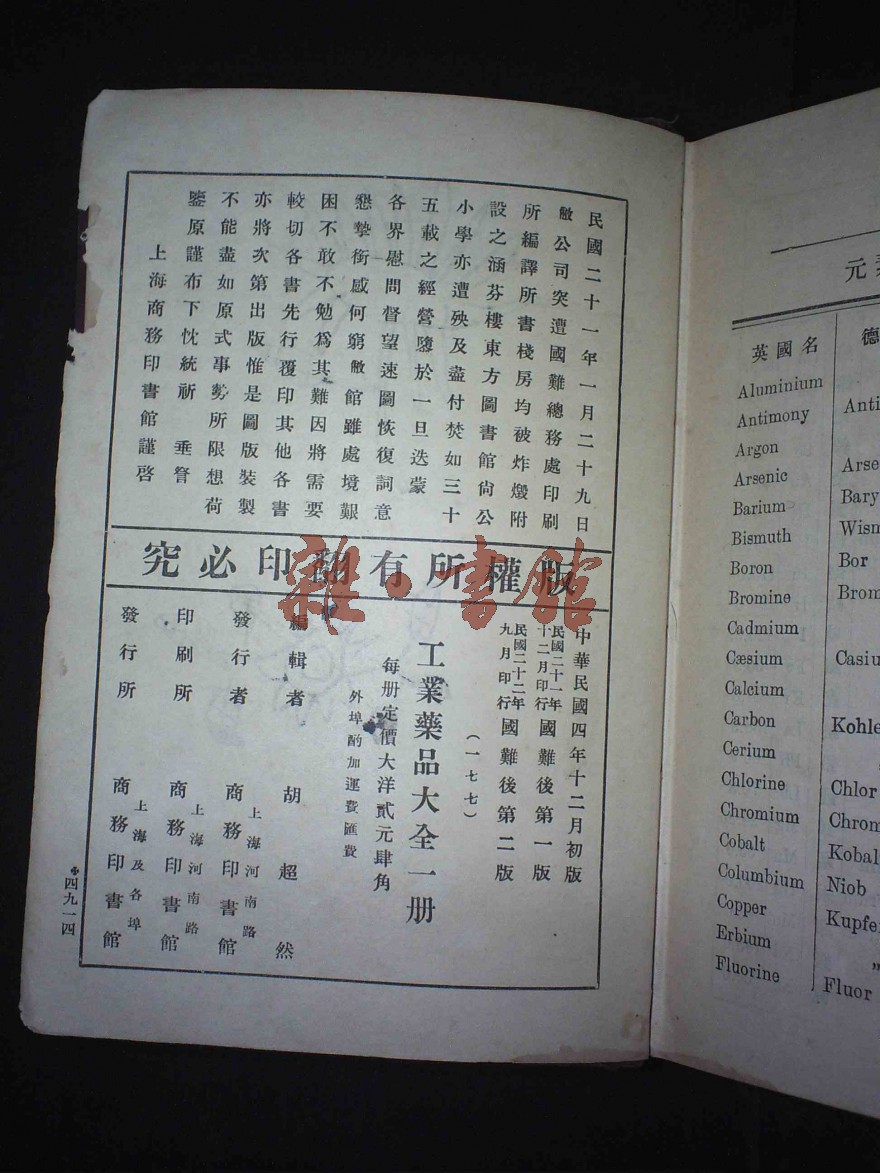 民國二十一年一月二十九日
敝公司突遭國難總務處印刷
所編譯所書棧房均被炸燬附
設之涵芬樓東方圖書館尙公
小學亦遭殃及盡付焚如三十
五載之經營隳於一旦迭蒙
各界慰問督望速圖恢復詞意
懇摯銜感何窮敝館雖處境艱
困不敢不勉爲其難因將需要
較切各書先行覆印其他各書
亦將次第出版惟是圖版裝製
不能盡如原式事勢所限想荷
鑒原謹布下忱統祈 垂詧
上海商務印書館謹啓
版權所有翻印必究
中華民國四年十二月初版
民國二十一年十二月印行 國難後第一版
民國二十二年九月印行 國難後第二版
(一七七)
工業藥品大全一册
每册定價大洋貳元肆角
外埠酌加運費匯費
編輯者 胡超然
發行者 上海河南路 商務印書館
印刷所 上海河南路 商務印書館
發行所 上海及各埠 商務印書館
四九一四
雜·書館
元
英國名 德
Aluminium
Antimony Anti
Argon
Arsenic Arse
Barium Bary
Bismuth Wism
Boron Bor
Bromine Brom
Cadmium
Cæsium Casiu
Calcium
Carbon Kohle
Cerium
Chlorine Chlor
Chromium Chrom
Cobalt Kobal
Columbium Niob
Copper Kupfe
Erbium „
Fluorine Fluor